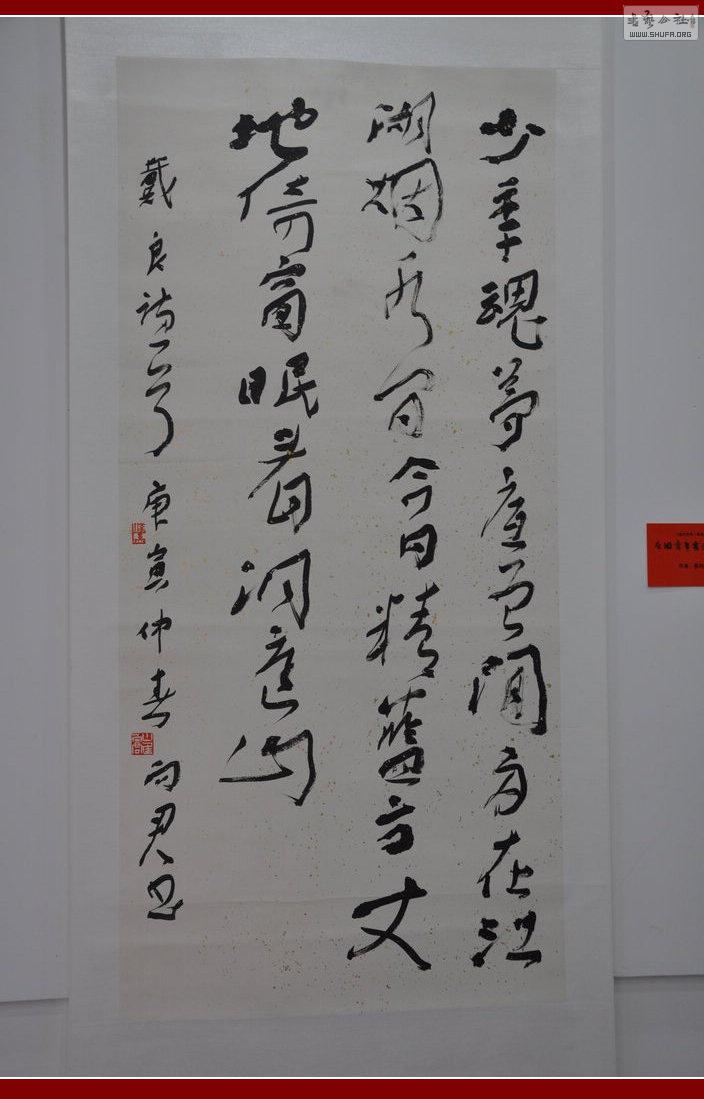 少年魂夢曾閒身在江
湖烟水间今日精藍方丈
地倚窗眠看洞庭山
戴良詩一首 庚寅仲春 雨君书
书艺公社
WWW.SHUFA.ORG